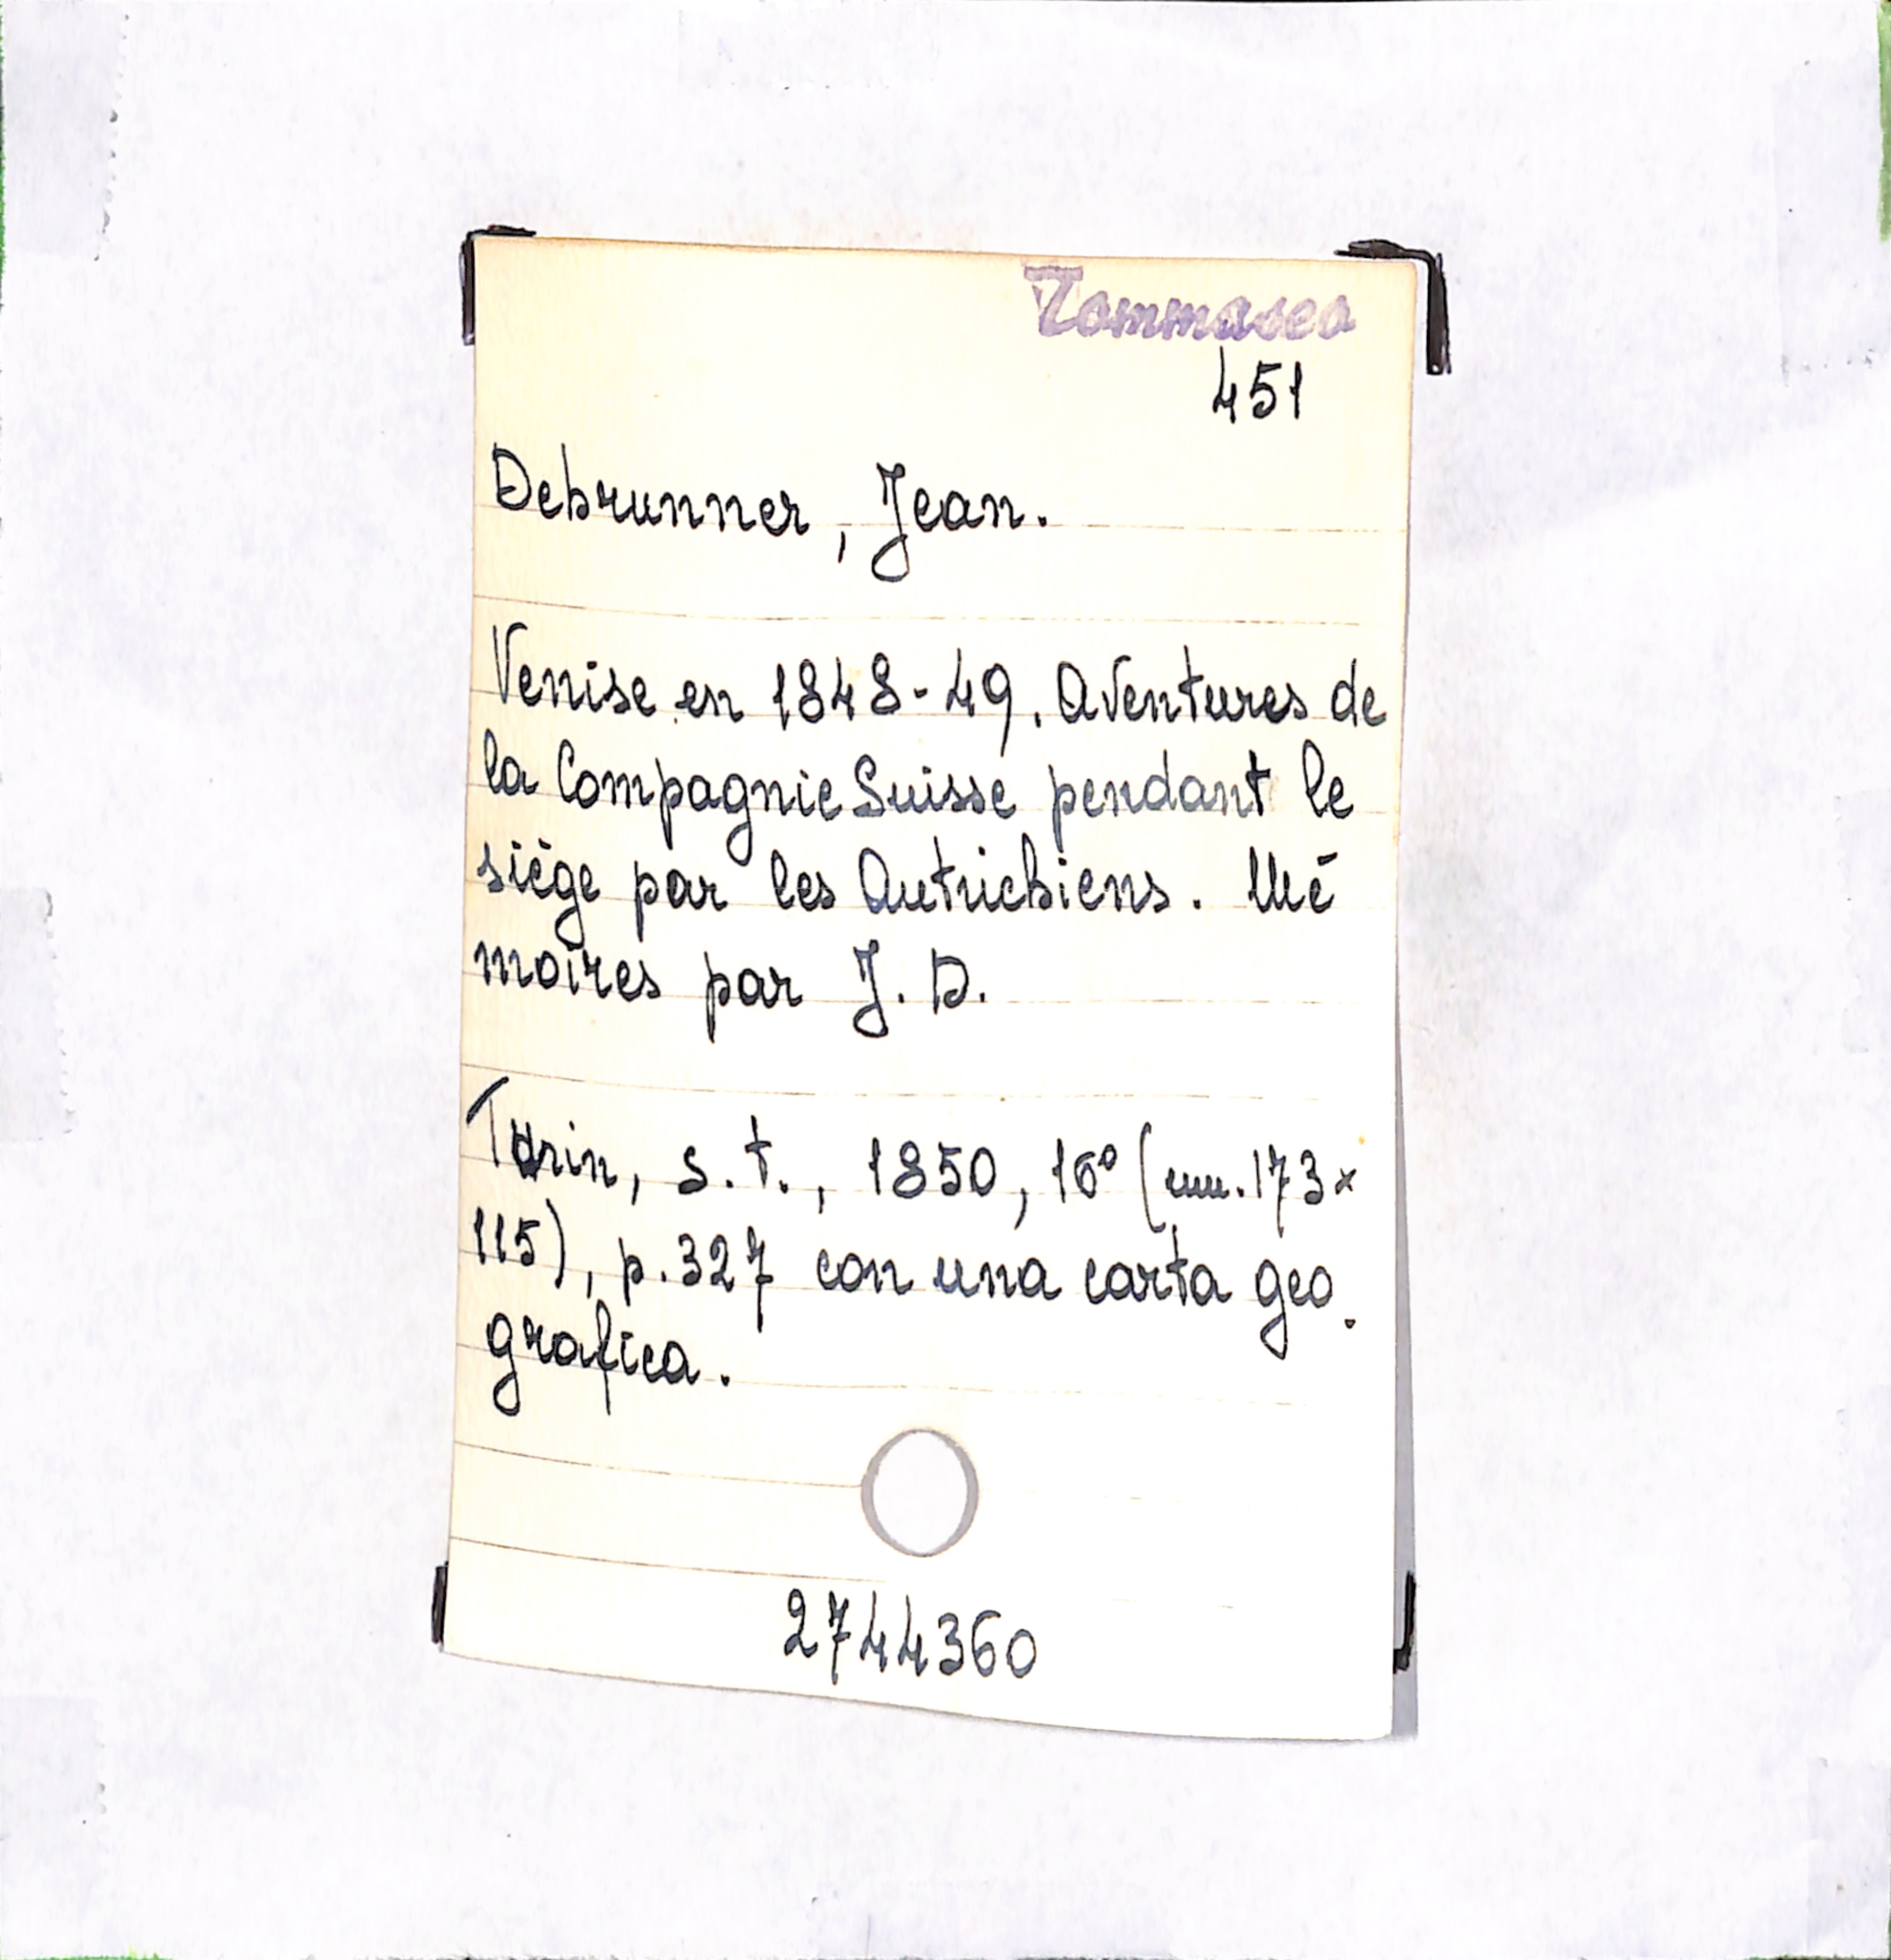 Tommaseo
451
Debrunner, Jean.
Venise en 1848-49. Aventures de
la Compagnie Suisse pendant le
siège par les Autrichiens. Mé
moires par J. D.
Turin, s.t., 1850, 16° (mm. 173x
115), p. 327 con una carta geo.
grafica.
2744360